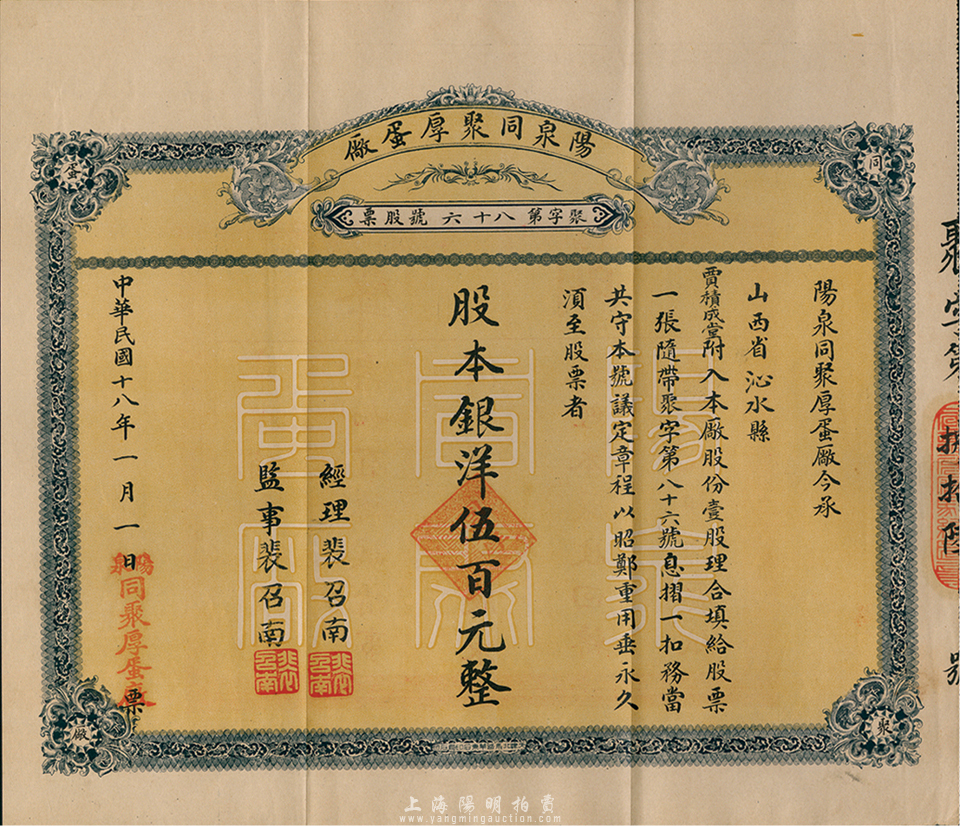 陽泉同聚厚蛋廠
聚字第八十六號股票
同
蛋
聚
廠
陽泉同聚厚蛋廠今承
山西省沁水縣
賈積成堂附入本廠股份壹股理合填給股票
一張隨帶聚字第八十六號息摺一扣務當
共守本號議定章程以昭鄭重用垂永久
須至股票者
股本銀洋伍百元整
經理裴召南
監事裴召南
中華民國十八年一月一日
票
陽泉
同聚厚蛋廠
裴召南
裴召南
聚字第
捌拾陸
號
上海陽明拍賣
www.yangmingauction.com